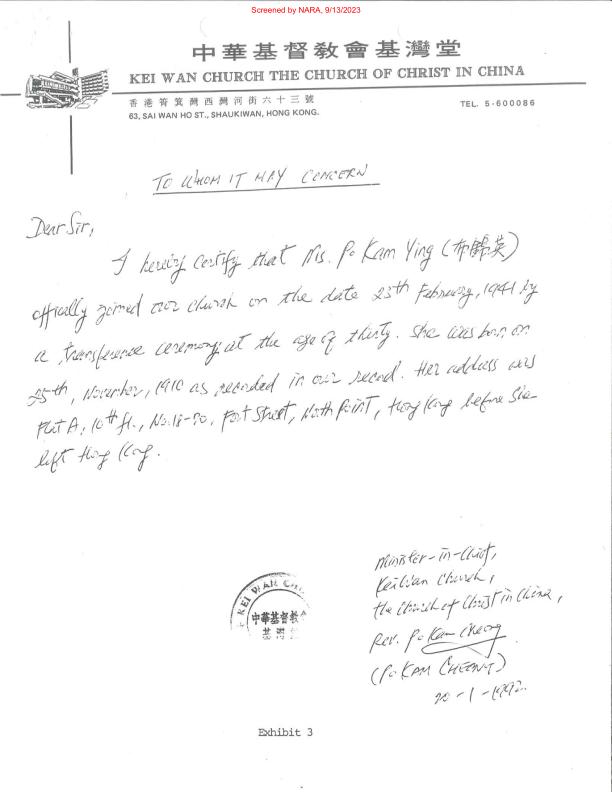 Screened by NARA, 9/13/2023
中華基督教會基灣堂
KEI WAN CHURCH THE CHURCH OF CHRIST IN CHINA
香港筲箕灣西灣河街六十三號
63, SAI WAN HO ST., SHAUKIWAN, HONG KONG.
TEL. 5-600086
TO WHOM IT MAY CONCERN
Dear Sir,
I hereby certify that Ms. Po Kam Ying (布錦英)
offically joined our church on the date 23th February, 1941 by
a transference ceremony at the age of thirty. She was born on
25th, November, 1910 as recorded in our record. Her address was
Flat A, 10th fl., No. 18-20, Fort Street, North Point, Hong Kong before she
left Hong Kong.
Minister-in-Chief,
Kei Wan Church,
the Church of Christ in China,
Rev. Po Kam Cheong
(PO KAM CHEONG)
20-1-1992
KEI WAN CHU
中華基督教會
基灣
Exhibit 3